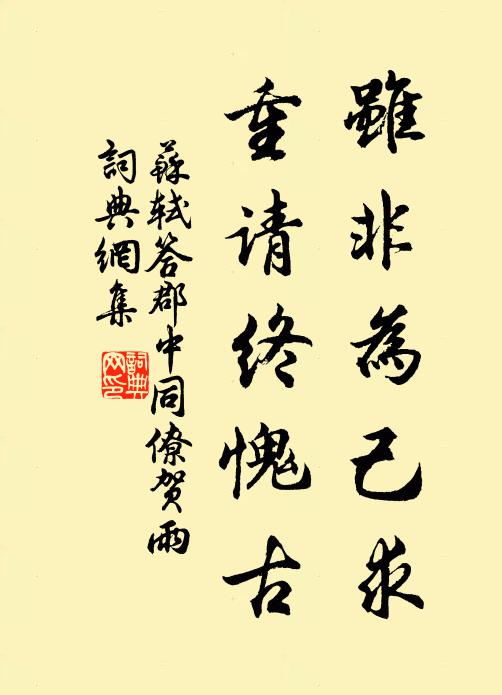 雖非為己求
重请终愧古
蘇軾答郡中同僚贺雨
詞典網集
詞典
网印